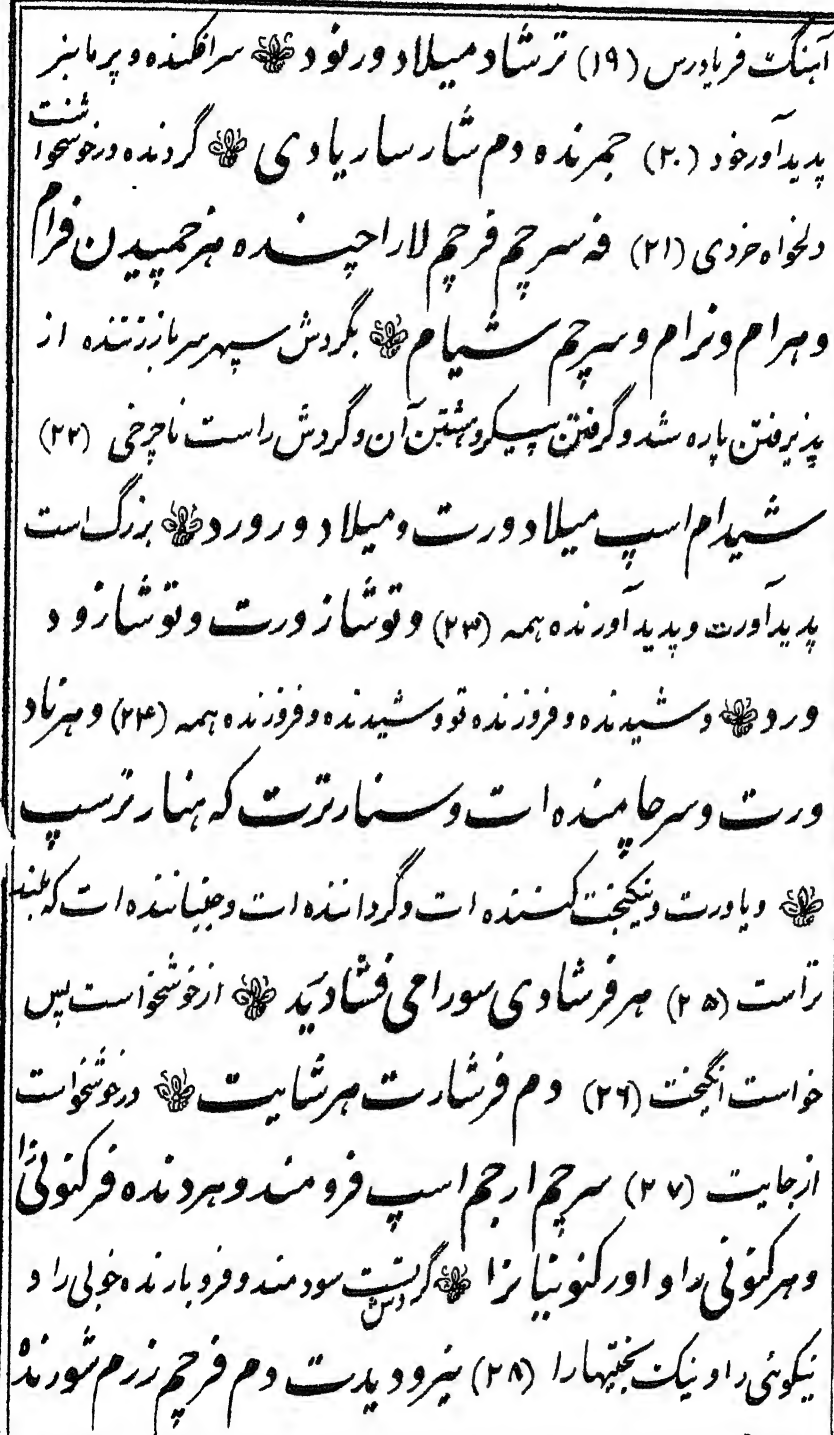 آهنگ فریادرس (۱۹) ترشاد میلاد ورنود سرافکنده و پرمانبر
پدیدآور خود (۲۰) جمرنده دم شارسار یادی گردنده در خوشخواست
دلخواه خردی (۲۱) فه سرچم فرچم لاراچنده هزچمپیدن فرام
و هرام و نرام و سرچم شیام بگردش سپهر سر باززننده از
پذیرفتن پاره شد و گرفتن پیکر و هشتن آن و گردش راست ناچرخی (۲۲)
شیدام اسپ میلاد ورت و میلاد ورورد بزرگ است
پدید آورت و پدید آورنده همه (۲۳) و توشاز ورت و توشازو د
ورد و شیدنده و فروزنده تو و شیدنده و فروزنده همه (۲۴) و هرناد
ورت و سرچامنده ات و سنارترت که هنار ترسپ
و یاورت و نیکبخت کننده ات و گرداننده ات و جنباننده ات که بلند
تراست (۲۵) هرفرشادی سوراحی فشادید از خوشخواست پس
خواست انگیخت (۲۶) دم فرشارت هرشایت در خوشخواست
از جایت (۲۷) سرچم ارجم اسپ فرومند و هردنده فرکنونی را
و هرکنونی را و اورکنونیا نرا گردش سودمند و فروبارنده خوبی را و
نیکوئی را و نیک بختیها را (۲۸) نیرودیدت دم فرچم زرم شورنده